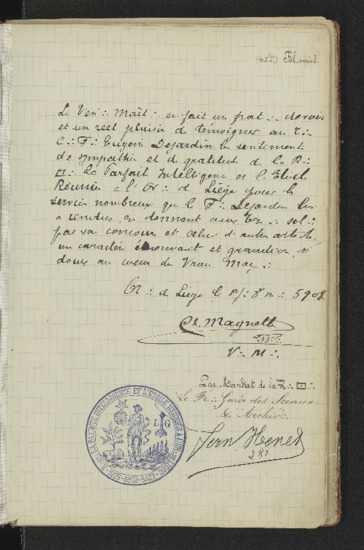 Le Ven∴ Mait∴ se fait un frat∴ devoir
et un réel plaisir de témoigner au T∴
C∴ F∴ Dejardin les sentiments
de sympathie et de gratitude de la R∴
▭∴ La Parfaite Intelligence et l'Etoile
Réunies à l'Or∴ de Liège pour les
services nombreux que le F∴ Dejardin lui
a rendus en donnant aux
par son concours et celui d'autres artistes,
un caractère émouvant et grandiose, si
doux au coeur du Vrai Maç∴
Or∴ de Liège le
Ch. Magnette
33e
V∴ M∴
Par Mandat de la ▭∴
Le F∴ Garde des Sceaux
& Archives
Fern